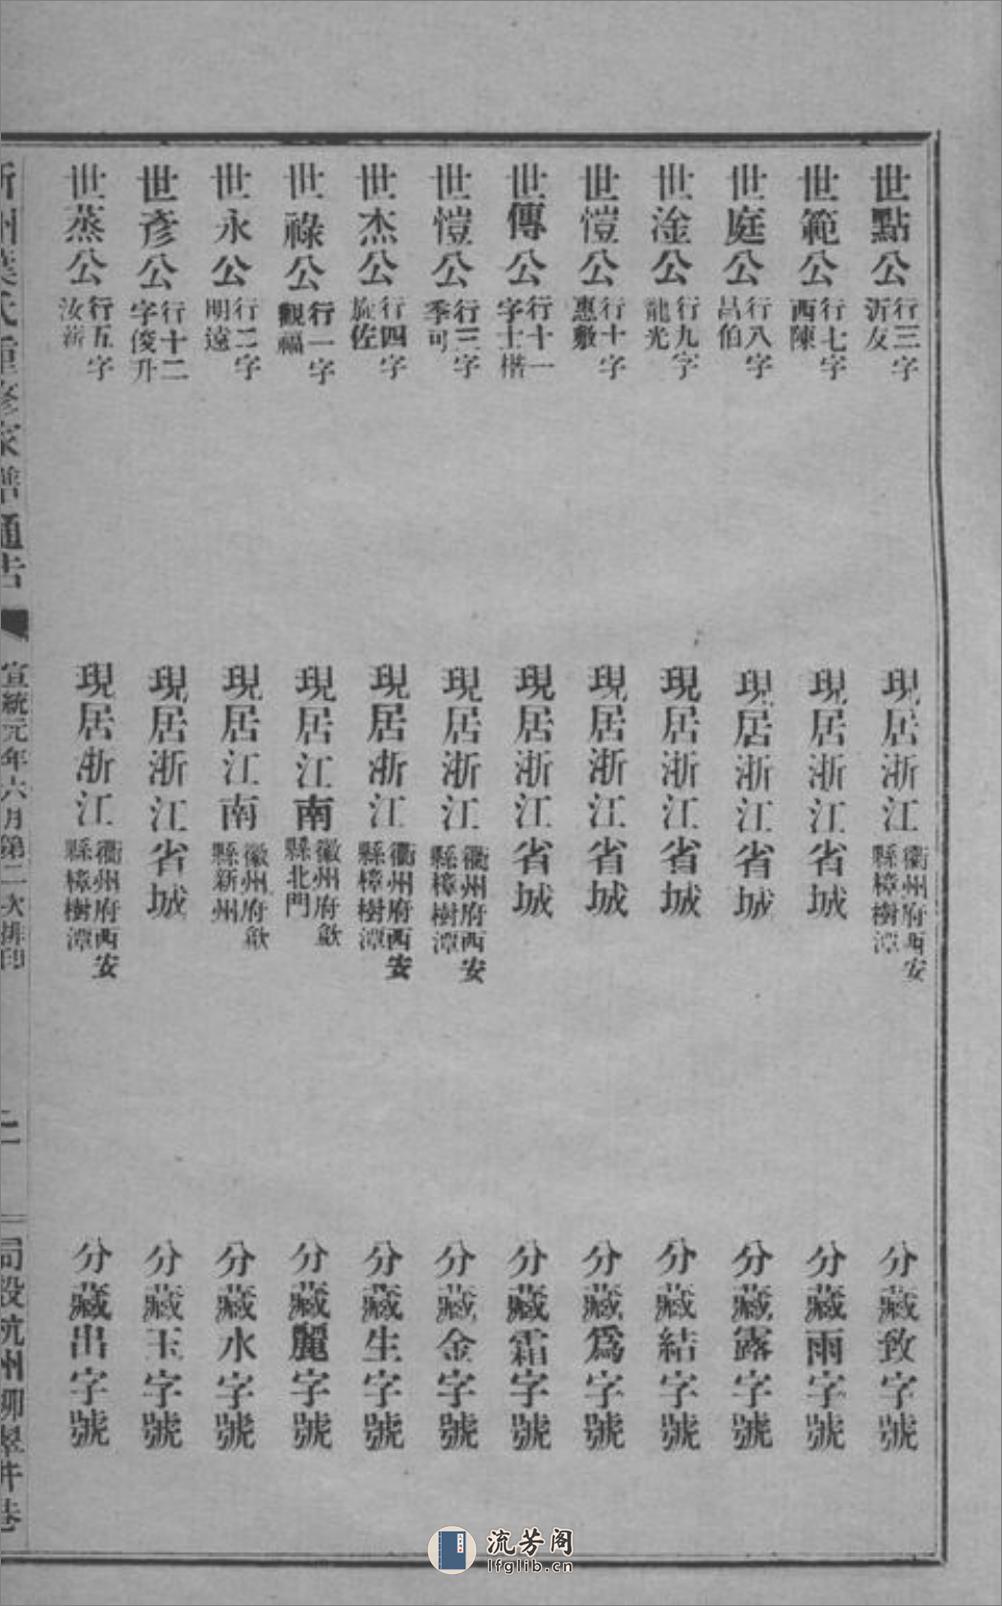 世點公行三字沂友 現居浙江衢州府西安縣樟樹潭 分藏致字號
世範公行七字西陳 現居浙江省城 分藏雨字號
世庭公行八字昌伯 現居浙江省城 分藏露字號
世淦公行九字龍光 現居浙江省城 分藏結字號
世愷公行十字惠敷 現居浙江省城 分藏爲字號
世傳公行十一字士楷 現居浙江省城 分藏霜字號
世愷公行三字季可 現居浙江衢州府西安縣樟樹潭 分藏金字號
世杰公行四字旋佐 現居浙江衢州府西安縣樟樹潭 分藏生字號
世祿公行一字觀福 現居江南徽州府歙縣北門 分藏麗字號
世永公行二字明遠 現居江南徽州府歙縣新州 分藏水字號
世彥公行十二字俊升 現居浙江省城 分藏玉字號
世蒸公行五字汝薪 現居浙江衢州府西安縣樟樹潭 分藏出字號
新州葉氏重修家譜通告 宣統元年六月第二次排印 局設杭州柳翠井巷
流芳阁
lfglib.cn